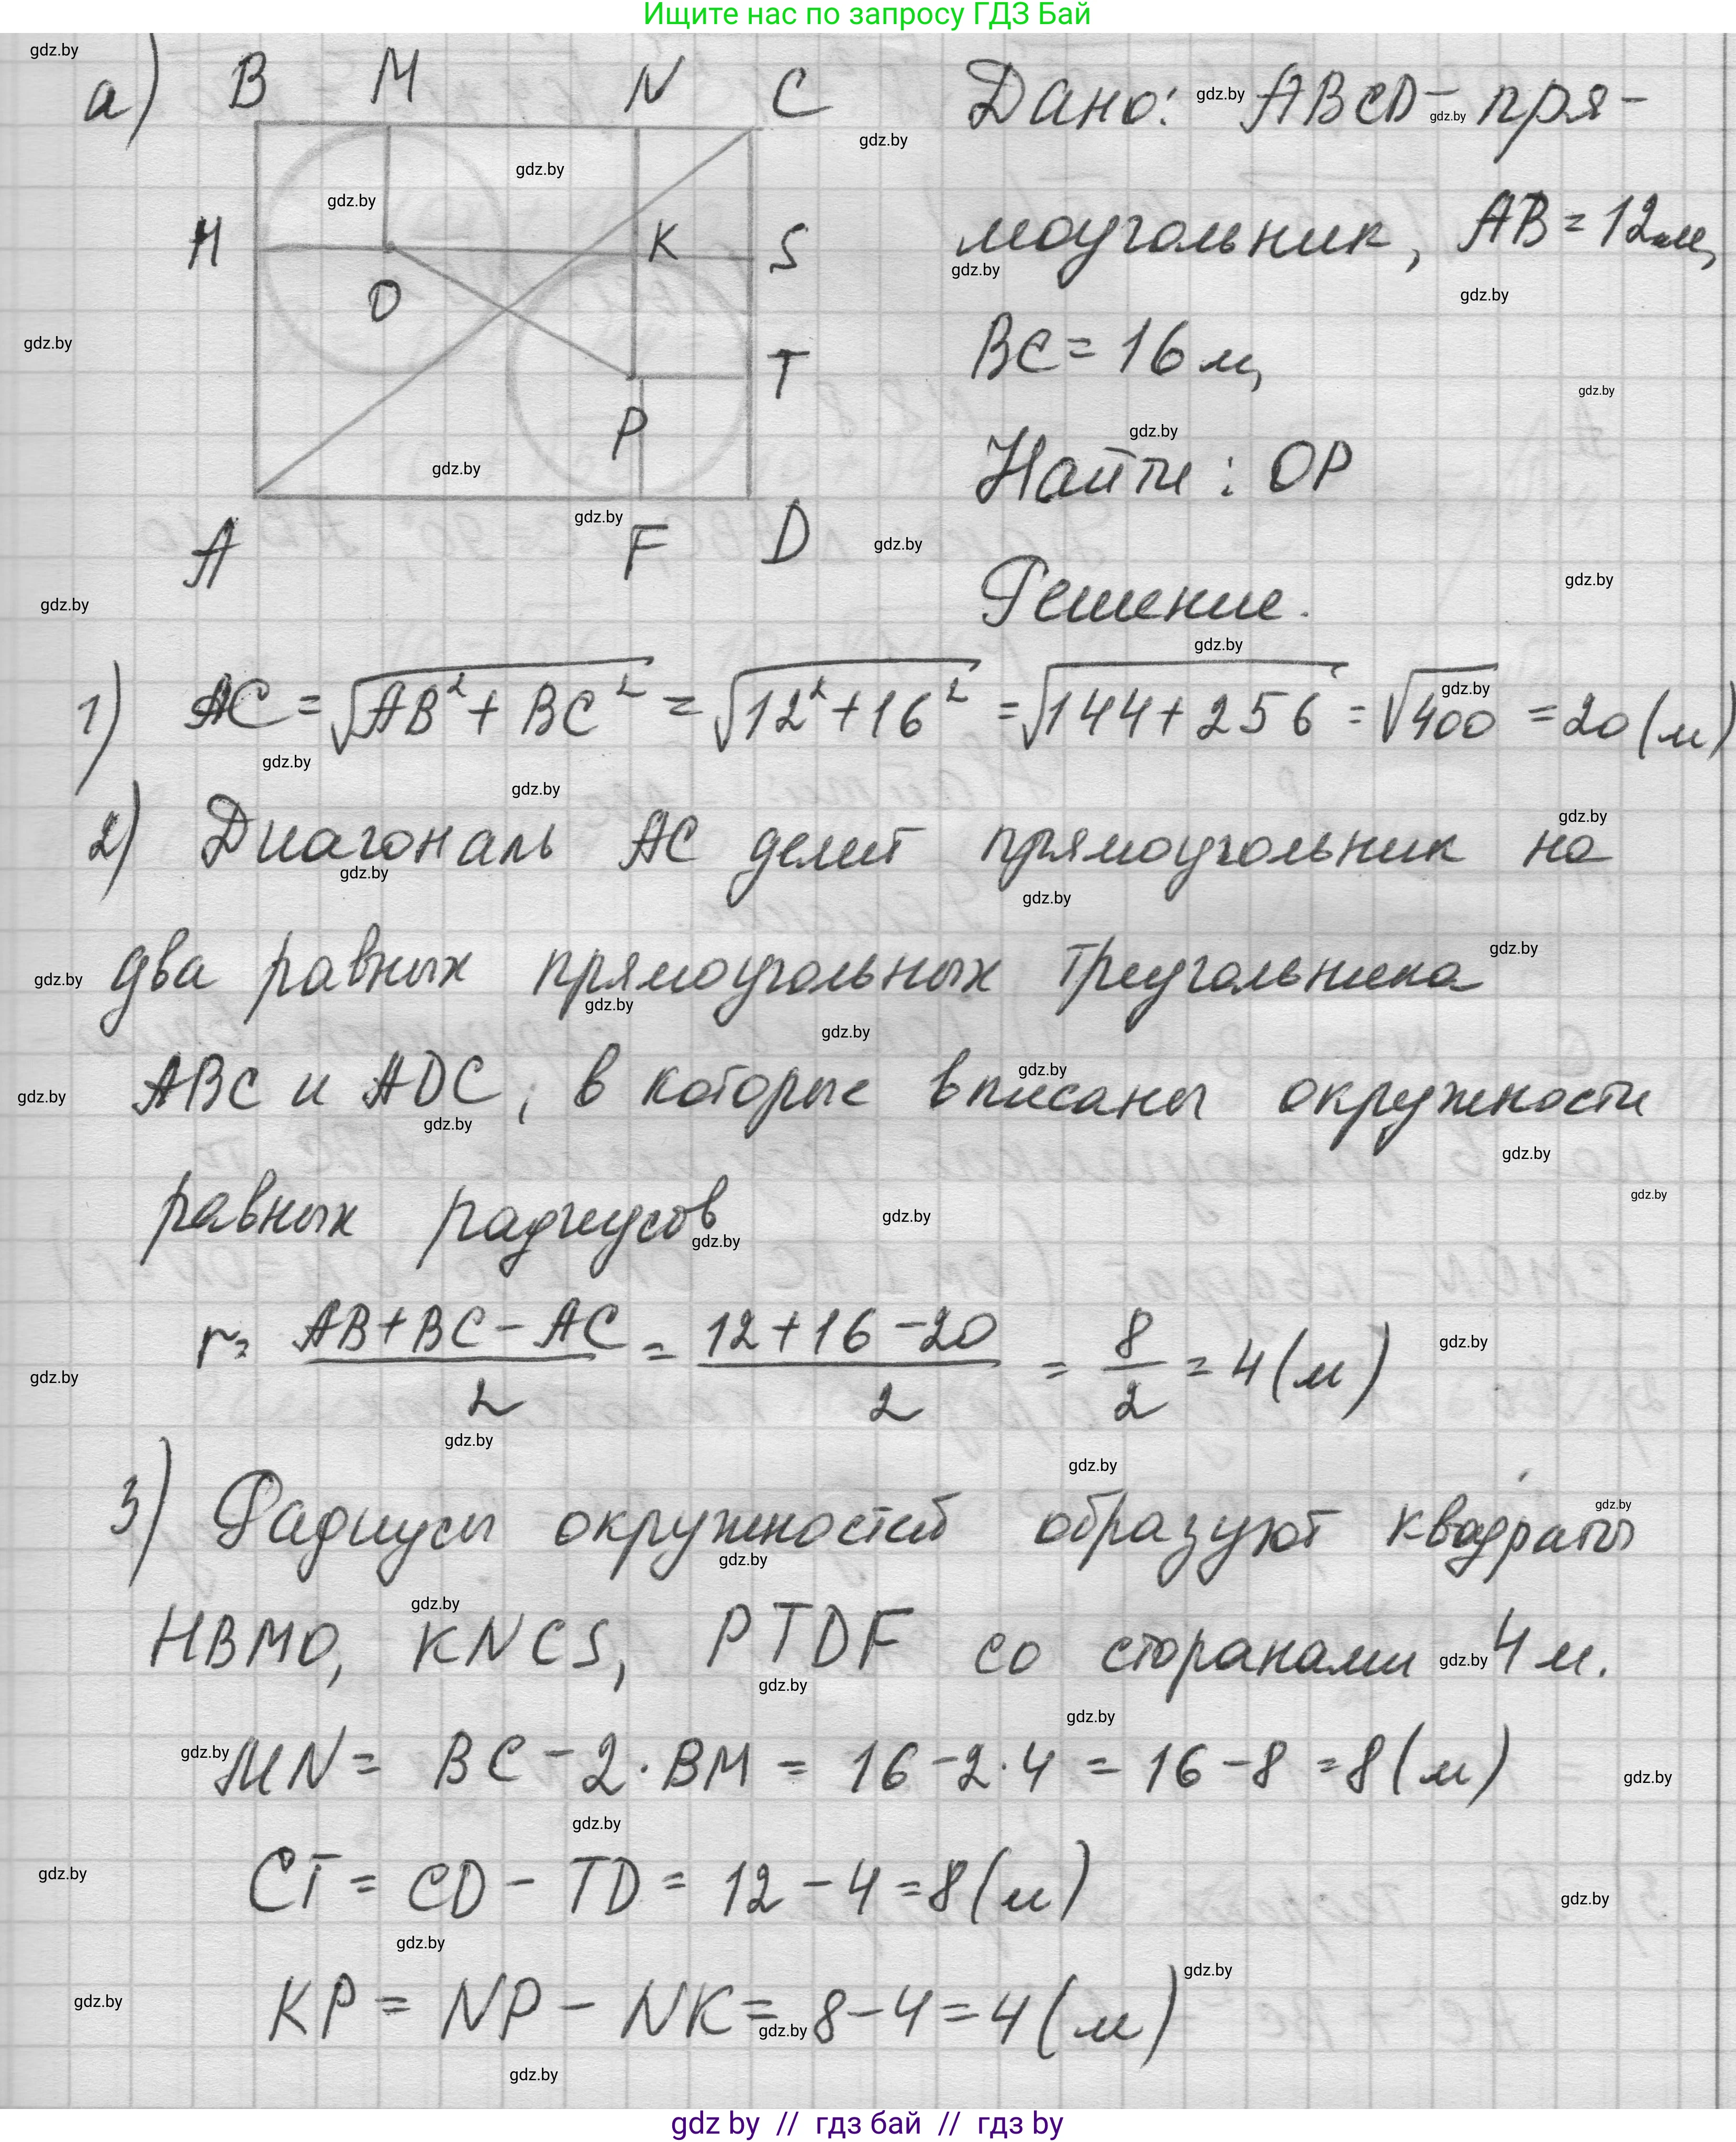 Ищите нас по запросу ГДЗ Бай
а) B M N C
H O K S
T
P
A F D
Дано: ABCD - пря-
моугольник, AB = 12 м,
BC = 16 м,
Найти: OP
Решение.
1) AC = √AB² + BC² = √12² + 16² = √144 + 256 = √400 = 20 (м)
2) Диагональ AC делит прямоугольник на
два равных прямоугольных треугольника
ABC и ADC, в которые вписаны окружности
равных радиусов
r = AB + BC - AC / 2 = 12 + 16 - 20 / 2 = 8 / 2 = 4 (м)
3) Радиусы окружностей образуют квадраты
HBMO, KNCS, PTDF со сторанами 4 м.
MN = BC - 2 · BM = 16 - 2 · 4 = 16 - 8 = 8 (м)
CT = CD - TD = 12 - 4 = 8 (м)
KP = NP - NK = 8 - 4 = 4 (м)
gdz by // гдз бай // гдз by